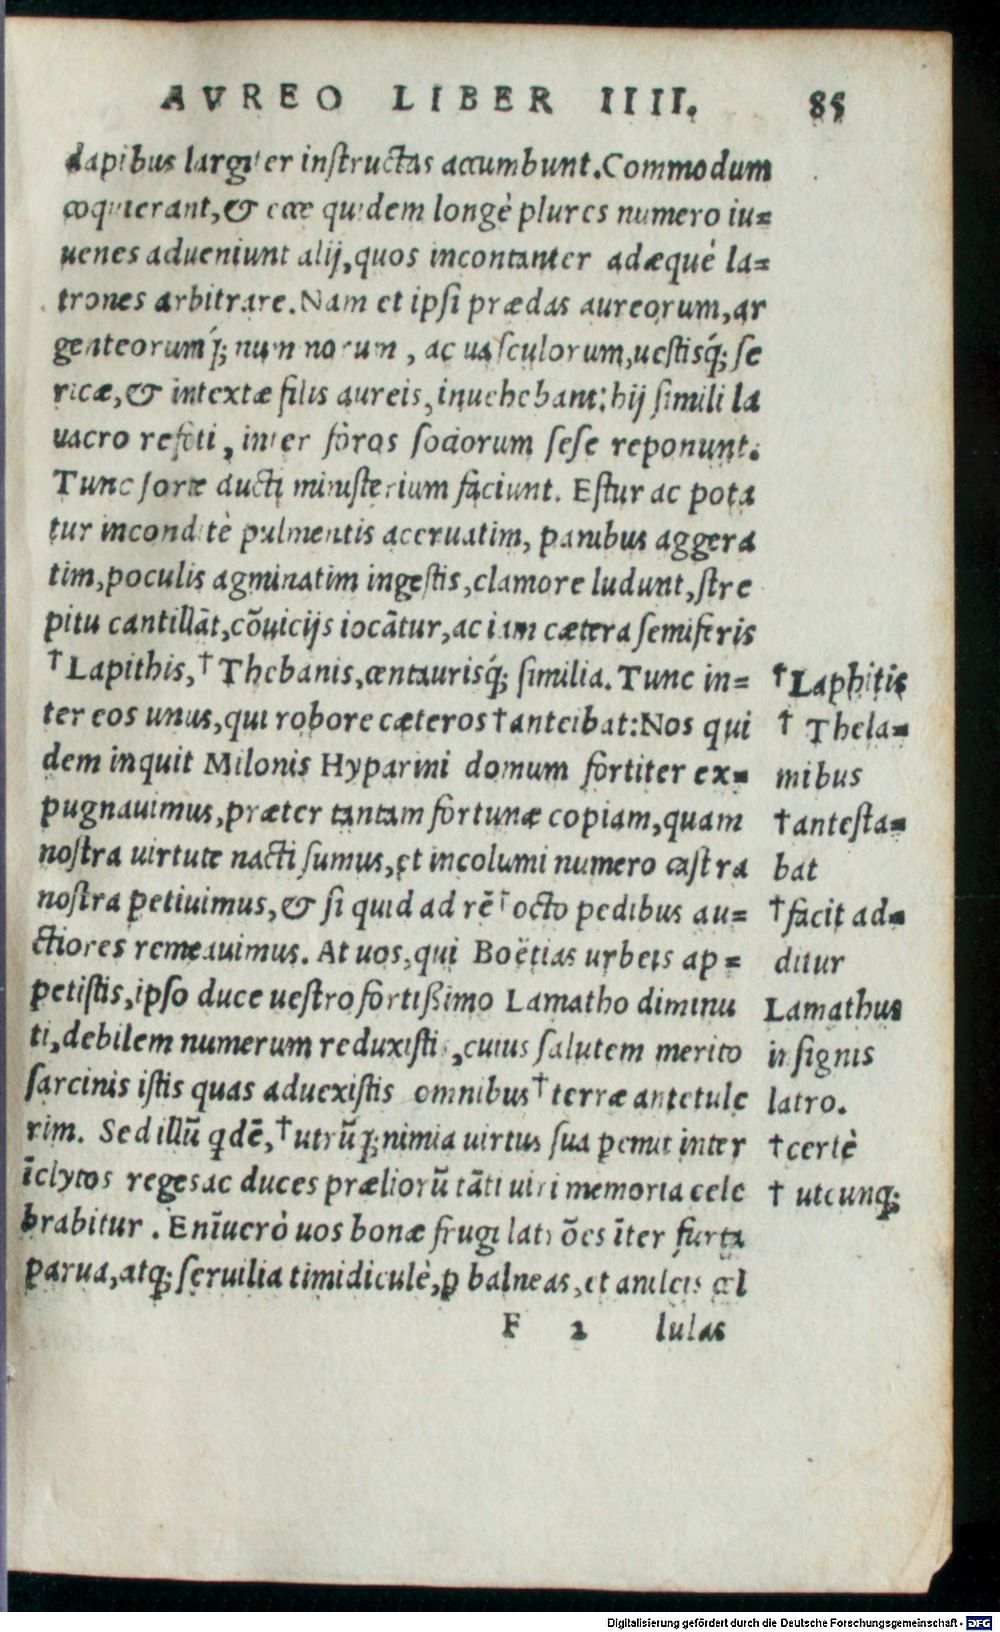 AVREO LIBER IIII. 85
dapibus largiter instructas accumbunt. Commodum
coquierant, & ecce quidem longè plures numero iu=
uenes adueniunt alij, quos incontanter adæquè la=
trones arbitrare. Nam et ipsi prædas aureorum, ar
genteorumq́; nummorum, ac uasculorum, uestisq́; se
ricæ, & intextæ filis aureis, inuehebant: hij simili la
uacro refoti, inter foros sociorum sese reponunt.
Tunc sorte ducti ministerium faciunt. Estur ac pota
tur inconditè pulmentis aceruatim, panibus aggera
tim, poculis agminatim ingestis, clamore ludunt, stre
pitu cantillāt, cōuicijs iocātur, ac iam cætera semiferis
†Lapithis, †Thebanis, centaurisq́; similia. Tunc in=
ter eos unus, qui robore cæteros †anteibat: Nos qui
dem inquit Milonis Hyparini domum fortiter ex=
pugnauimus, præter tantam fortunæ copiam, quam
nostra uirtute nacti sumus, et incolumi numero castra
nostra petiuimus, & si quid ad rē †octo pedibus au=
ctiores remeauimus. At uos, qui Boëtias urbeis ap=
petistis, ipso duce uestro fortißimo Lamatho diminu
ti, debilem numerum reduxistis, cuius salutem merito
sarcinis istis quas aduexistis omnibus †terræ antetule
rim. Sed illū qdē, †utrūq; nimia uirtus sua pemit inter
īclytos reges ac duces præliorū tāti uiri memoria cele
brabitur. Enīuerò uos bonæ frugi latrōes īter furta
parua, atq; seruilia timidiculè, ꝑ balneas, et anileis cel
F 2 lulas
†Laphitis
† Thela=
mibus
†antesta=
bat
†facit ad=
ditur
Lamathus
insignis
latro.
†certè
† utcunq;